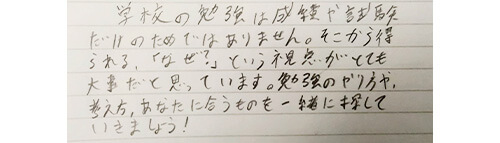 学校の勉強は成績や試験
だけのためではありません。そこから得
られる、「なぜ?」という視点がとても
大事だと思っています。勉強のやり方や、
考え方、あなたに合うものを一緒に探して
いきましょう!